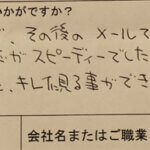 かがですか?
、その後のメールで
がスピーディーでした
、キレ傾る事ができ
会社名またはご職業